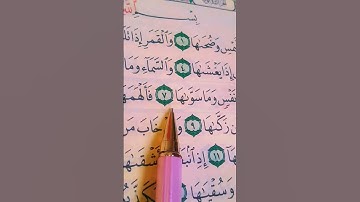 بِسْـ
ـمْسِ وَضُحَىٰهَا ١ وَٱلْقَمَرِ إِذَا تَلَىٰ
إِذَا يَغْشَىٰهَا ٤ وَٱلسَّمَآءِ وَمَا
نَفْسٍ وَمَا سَوَّىٰهَا ٧ فَأَلْهَمَهَا
ن زَكَّىٰهَا ٩ وَ خَابَ مَن
١١ إِذِ ٱنۢبَـ أَشْقَىٰهَا
وَسُقْيَـٰهَا فَكَذَّبُ